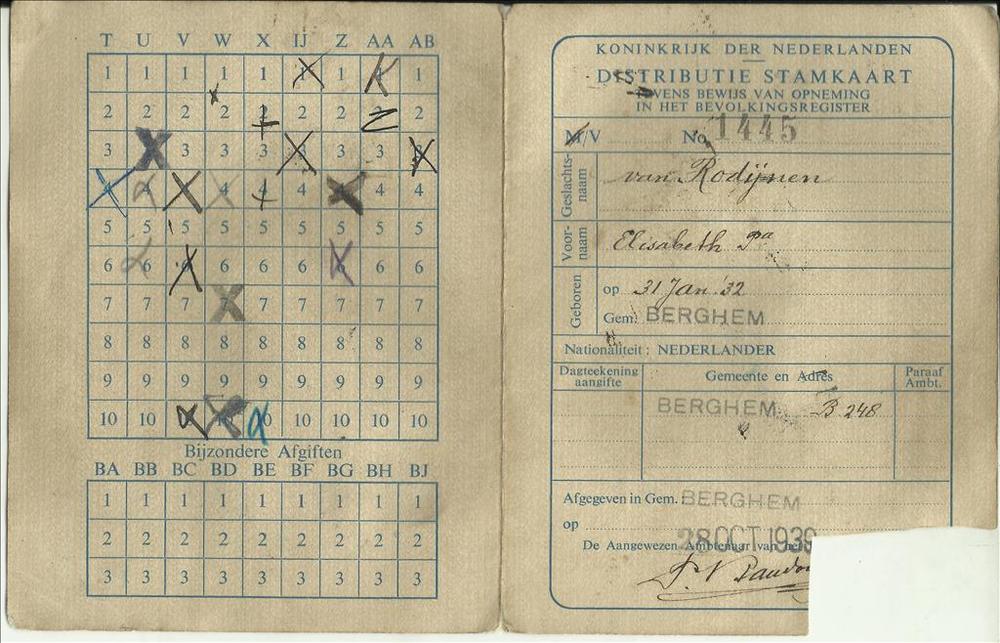 T U V W X IJ Z AA AB
1 1 1 1 1 1 1 1 1
2 2 2 2 2 2 2 2 2
3 3 3 3 3 3 3 3 3
4 4 4 4 4 4 4 4 4
5 5 5 5 5 5 5 5 5
6 6 6 6 6 6 6 6 6
7 7 7 7 7 7 7 7 7
8 8 8 8 8 8 8 8 8
9 9 9 9 9 9 9 9 9
10 10 10 10 10 10 10 10 10
Bijzondere Afgiften
BA BB BC BD BE BF BG BH BJ
1 1 1 1 1 1 1 1 1
2 2 2 2 2 2 2 2 2
3 3 3 3 3 3 3 3 3
KONINKRIJK DER NEDERLANDEN
DISTRIBUTIE STAMKAART
TEVENS BEWIJS VAN OPNEMING
IN HET BEVOLKINGSREGISTER
M/V No. 1445
Geslachts-
naam
van Rodijnen
Voor-
naam
Elisabeth Pa
Geboren
op 31 Jan '32
Gem. BERGHEM
Nationaliteit: NEDERLANDER
Dagteekening
aangifte
Gemeente en Adres
Paraaf
Ambt.
BERGHEM. B 248
Afgegeven in Gem. BERGHEM
op 28 OCT 1939
De Aangewezen Ambtenaar van het